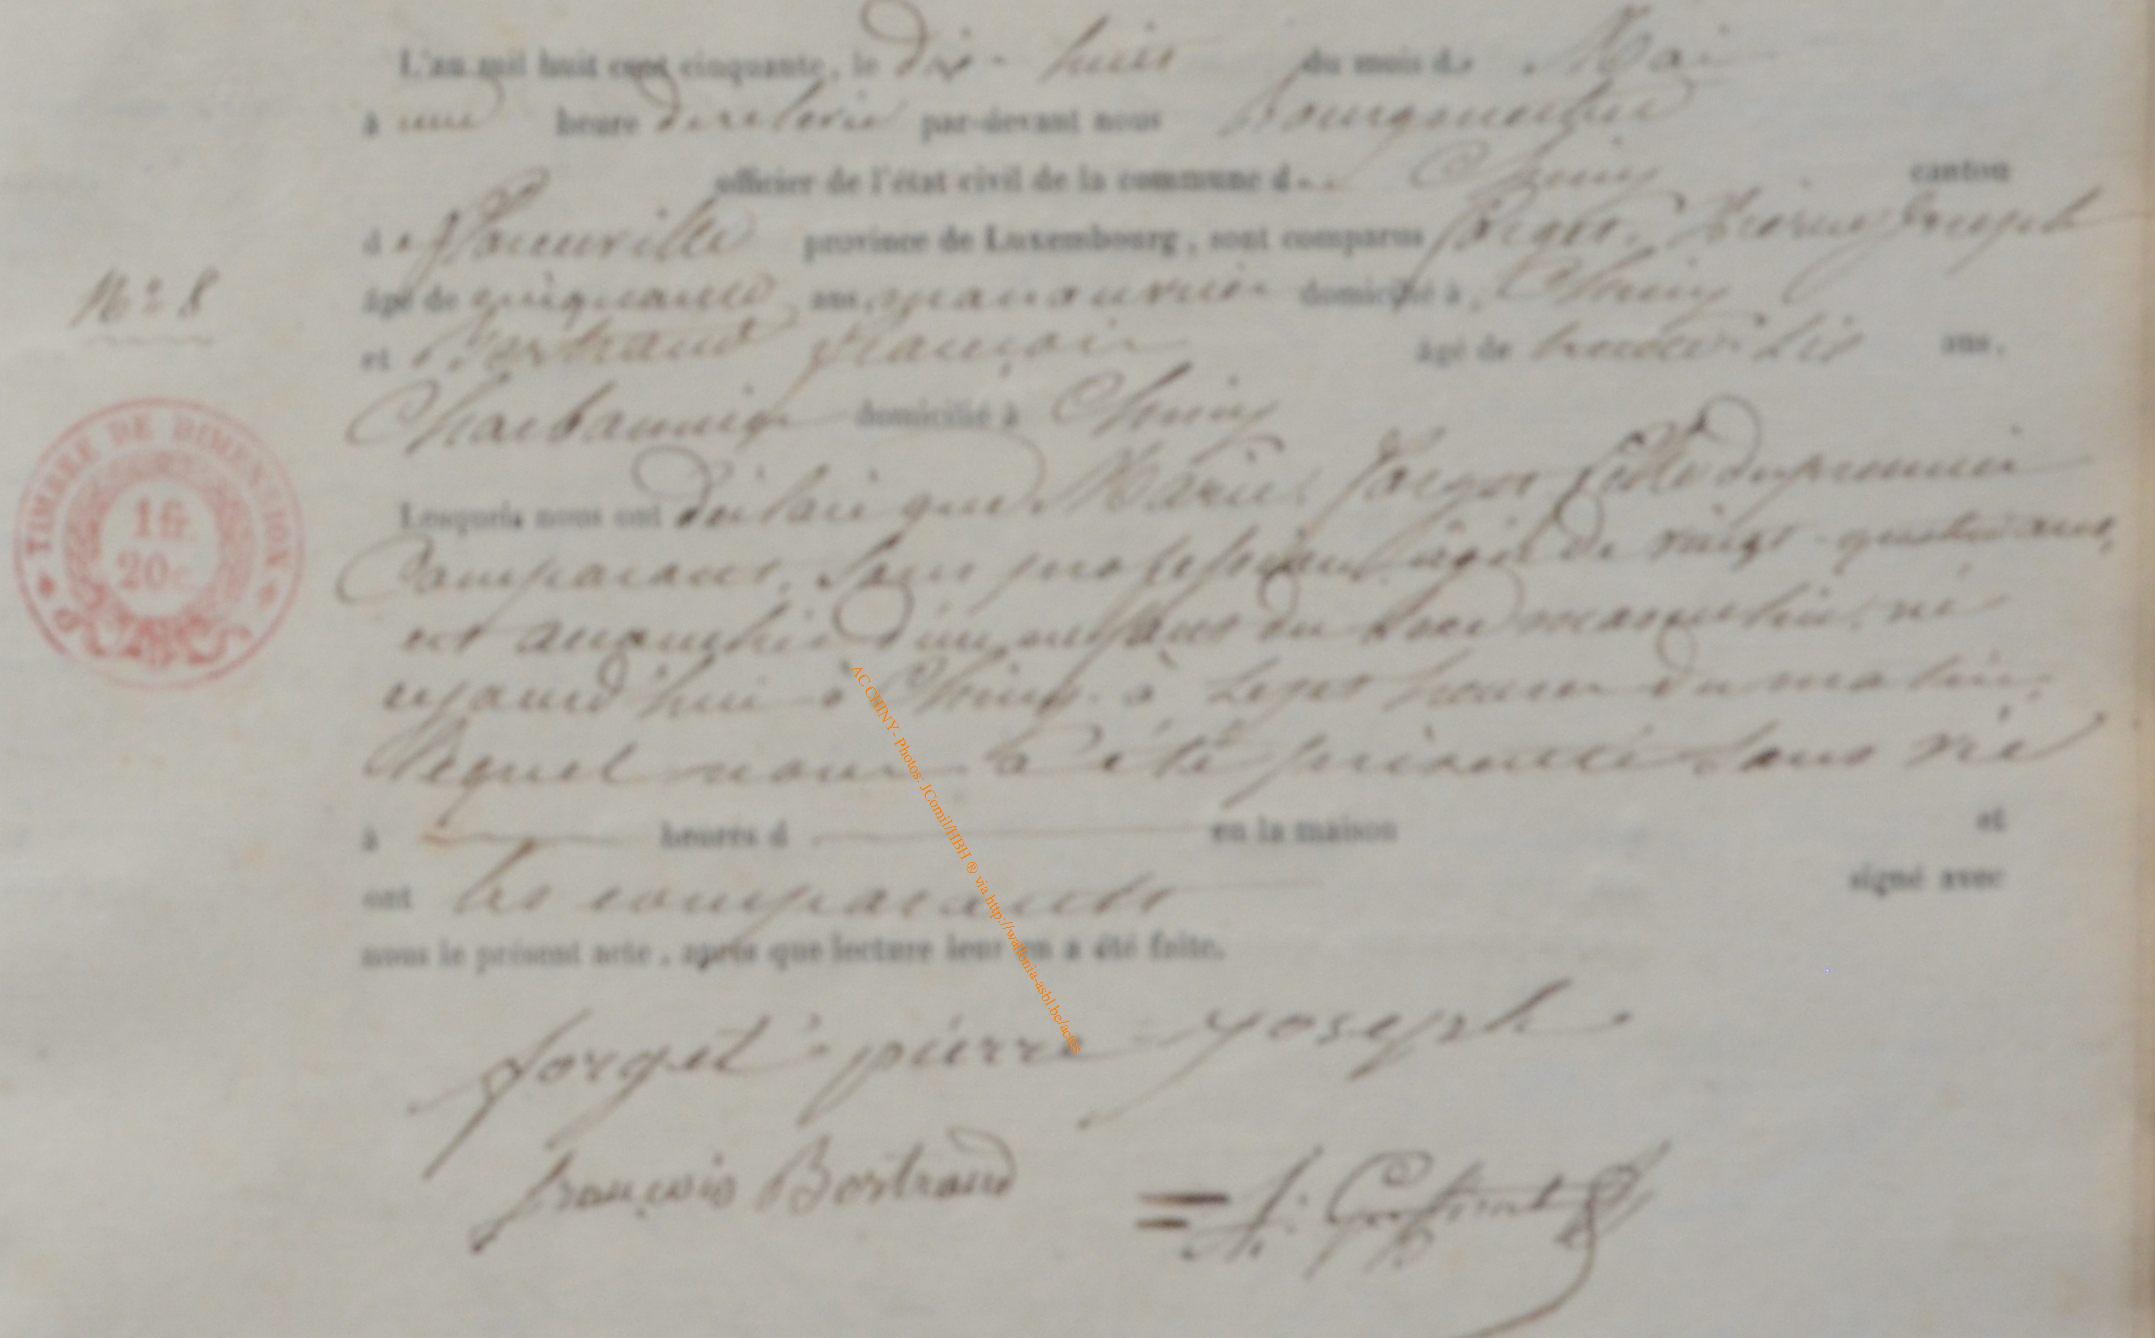 L'an mil huit cent cinquante, le Dix-huit du mois de Mai
à une heure de relevée par-devant nous Bourgmestre
officier de l'état civil de la commune de Chiny canton
de Florenville province de Luxembourg, sont comparus Forget, Pierre Joseph
âgé de cinquante ans, manouvrier domicilié à Chiny
et Bertrand François âgé de trente-six ans,
Charbonnier domicilié à Chiny
Lesquels nous ont déclaré que Marie Forget fille du premier
Comparant, Sans profession, âgée de vingt-quatre ans,
est accouchée d'un enfant du sexe masculin, né
aujourd'hui à Chiny à sept heures du matin,
Lequel nous a été présenté sans vie
à heures d en la maison et
ont les comparants signé avec
nous le présent acte, après que lecture leur en a été faite.
forget pierre joseph
françois Bertrand
N° 8
TIMBRE DE DIMENSION
1 fr.
20 c.
AC CHINY- Photos: JComil/HBH ® via http://wallonia-asbl.be/actes